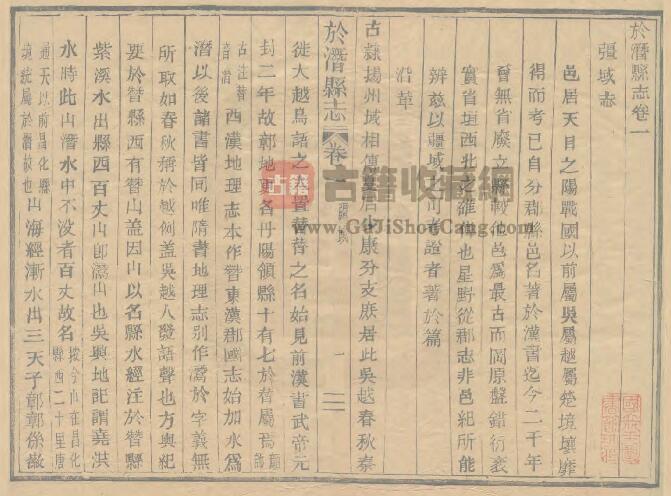 於潛縣志卷一
疆域志
邑居天目之陽戰國以前屬吳屬越屬楚境壤靡
得而考已自分郡縣邑名著於漢書迄今二千年
曾無省廢立縣較他邑爲最古而岡原盤錯衍袤
實省垣西北之雄
也星野從郡志非邑紀所能
辨茲以疆域
可考證者著於篇
沿革
古隸揚州域相傳夏后少康分支庶居此吳越春秋秦
於潛縣志
卷一
一
徙大越鳥語之人置朁朁之名始見前漢書武帝元
封二年故鄣地更名丹陽領縣十有七於朁屬焉顏師
古注朁音潛西漢地理志本作朁東漢郡國志始加水爲
潛以後諸書皆同唯隋書地理志別作灊於字義無
所取如春秋稱於越例蓋吳越人發語聲也方輿紀
要於朁縣西有朁山蓋因山以名縣水經注於朁縣
紫溪水出縣西百丈山卽灊山也吳興地記謂堯洪
水時此山潛水中不沒者百丈故名按今山在昌化縣西二十里唐
通天以前昌化縣境統屬於潛故也山海經漸水出三天子鄣鄣係故
古籍
古籍收藏網
www.GuJiShouCang.com